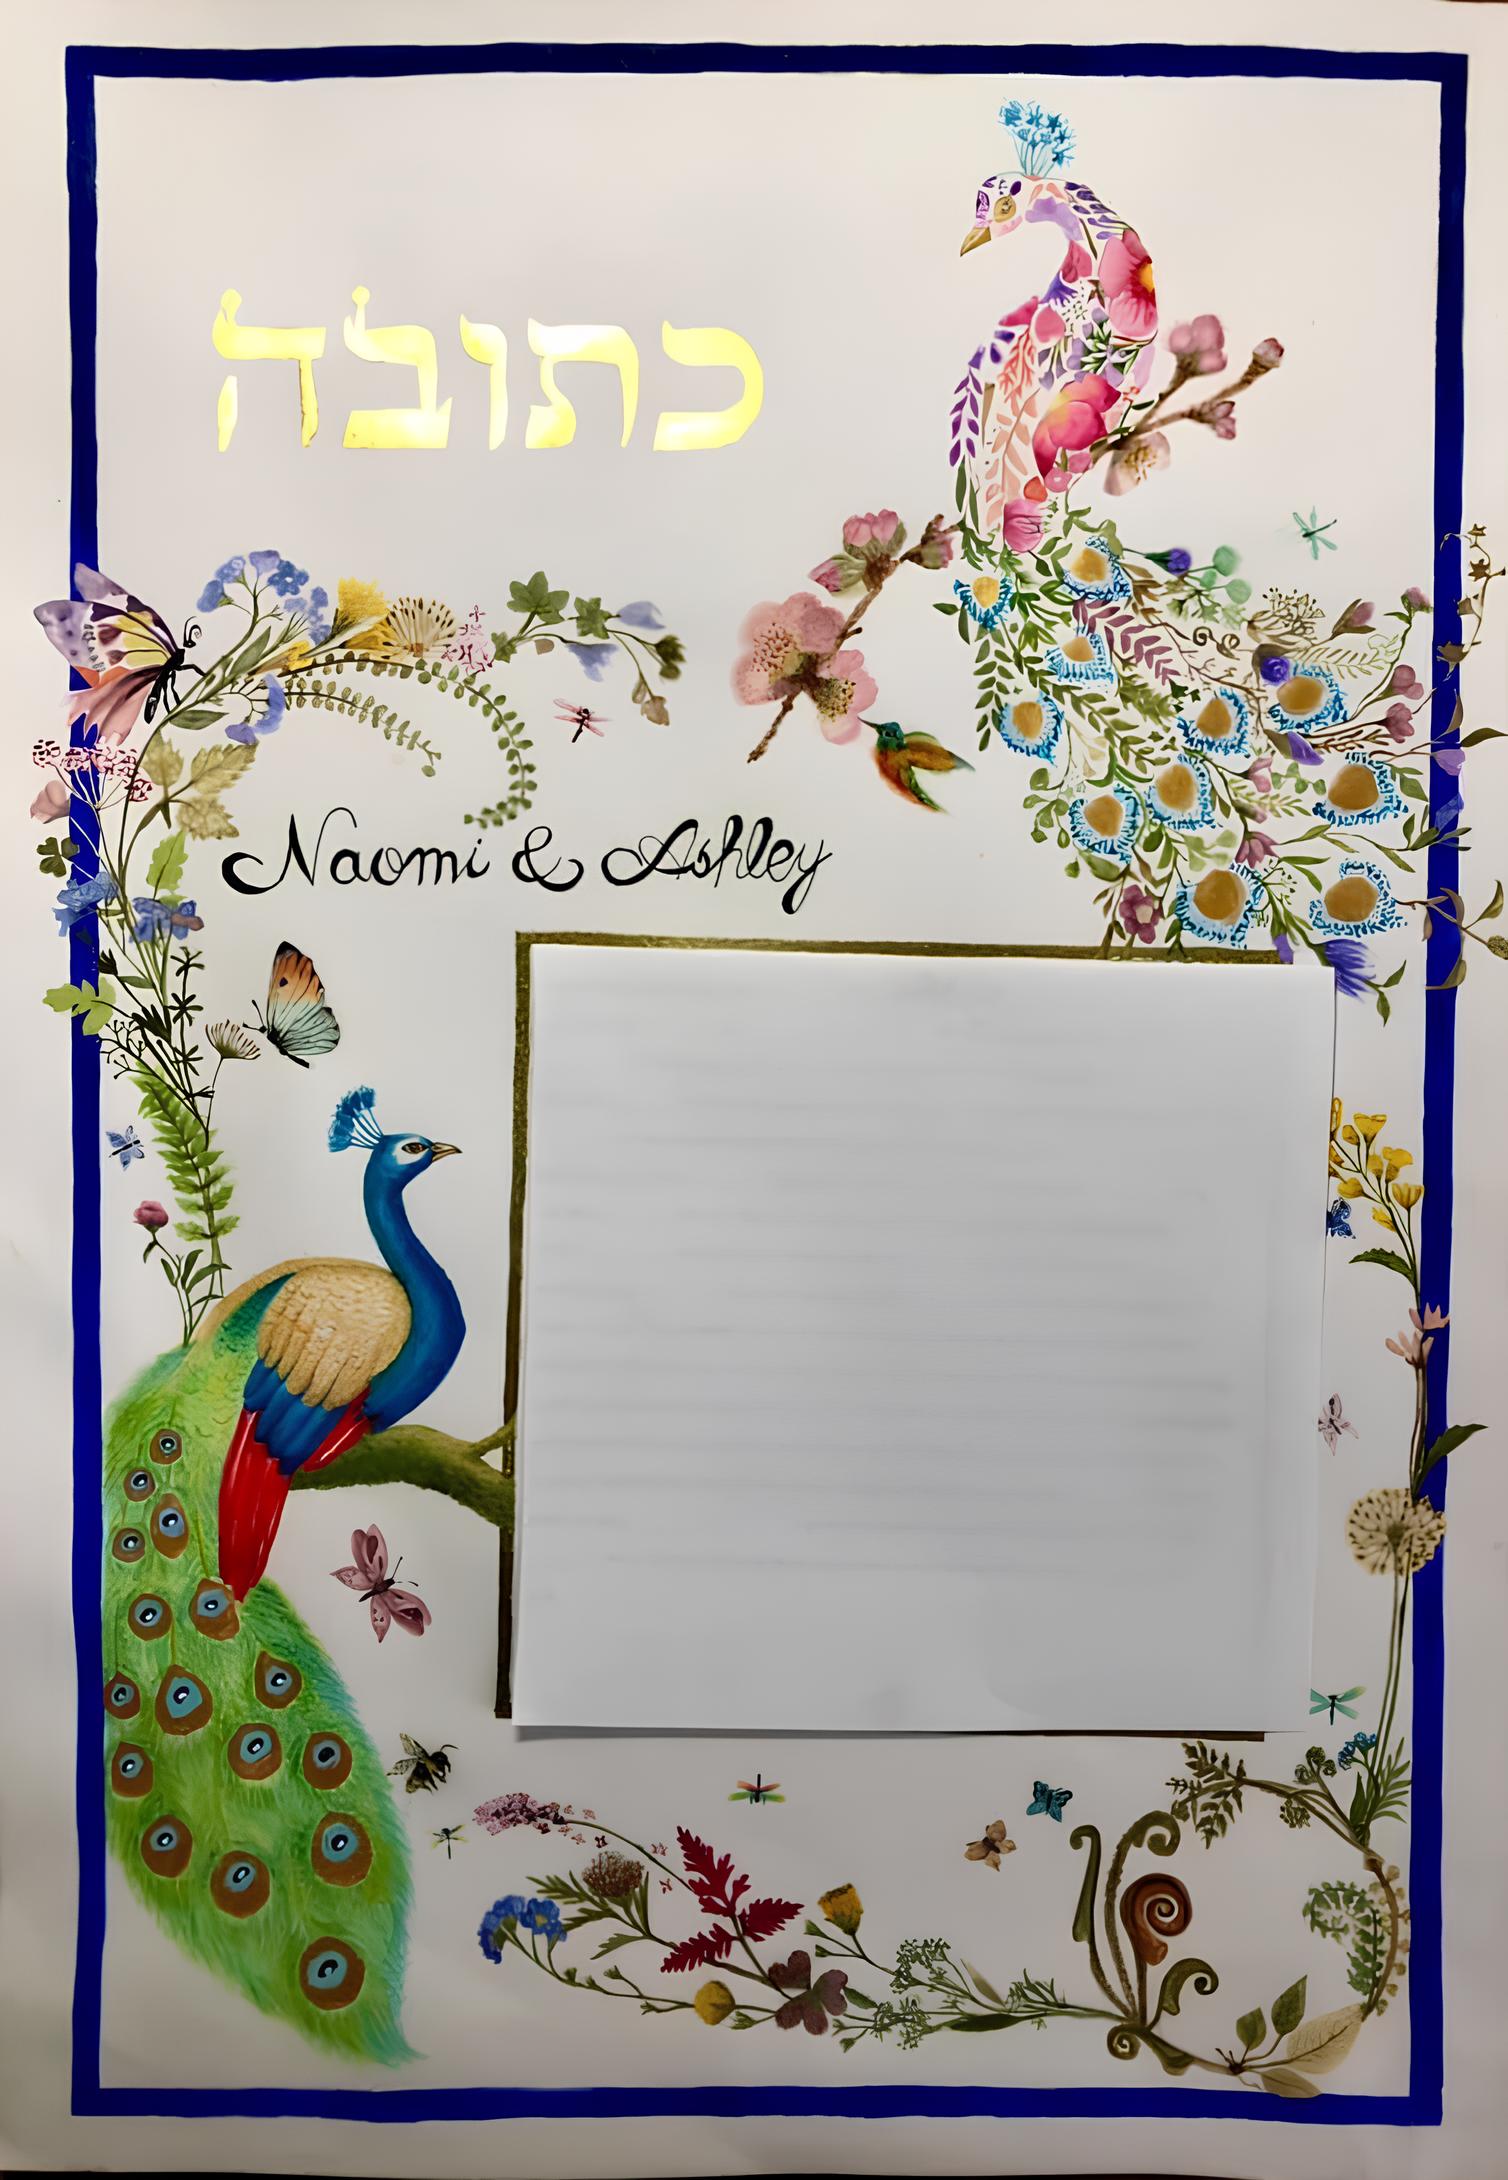 כתובה
Naomi & Ashley